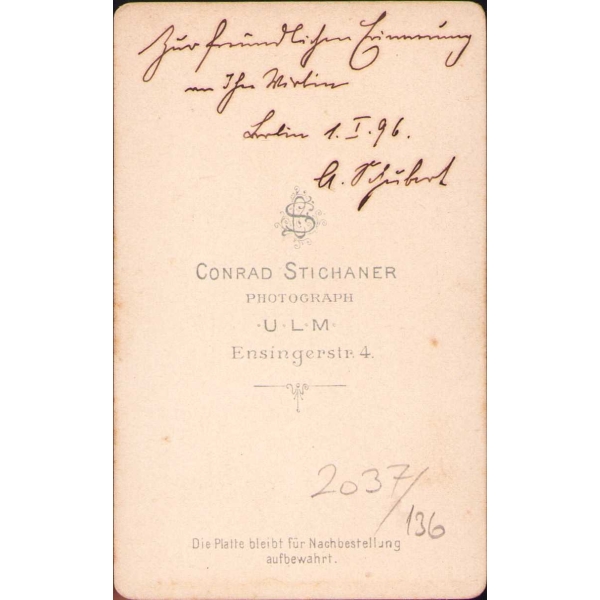 Zur freundlichen Erinnerung
an Ihre Wirtin
Berlin 1. I. 96.
A. Schubert
CONRAD STICHANER
PHOTOGRAPH
· U · L · M ·
Ensingerstr. 4.
2037/
136
Die Platte bleibt für Nachbestellung
aufbewahrt.